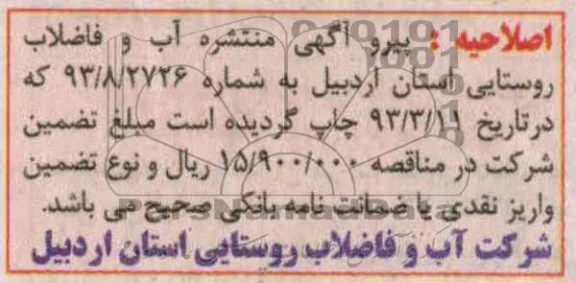 اصلاحیه : پیرو آگهی منتشره آب و فاضلاب
روستایی استان اردبیل به شماره ۹۳/۸/۲۷۲۶ که
درتاریخ ۹۳/۳/۱۱ چاپ گردیده است مبلغ تضمین
شرکت در مناقصه ۱۵/۹۰۰/۰۰۰ ریال و نوع تضمین
واریز نقدی یا ضمانت نامه بانکی صحیح می باشد.
شرکت آب و فاضلاب روستایی استان اردبیل